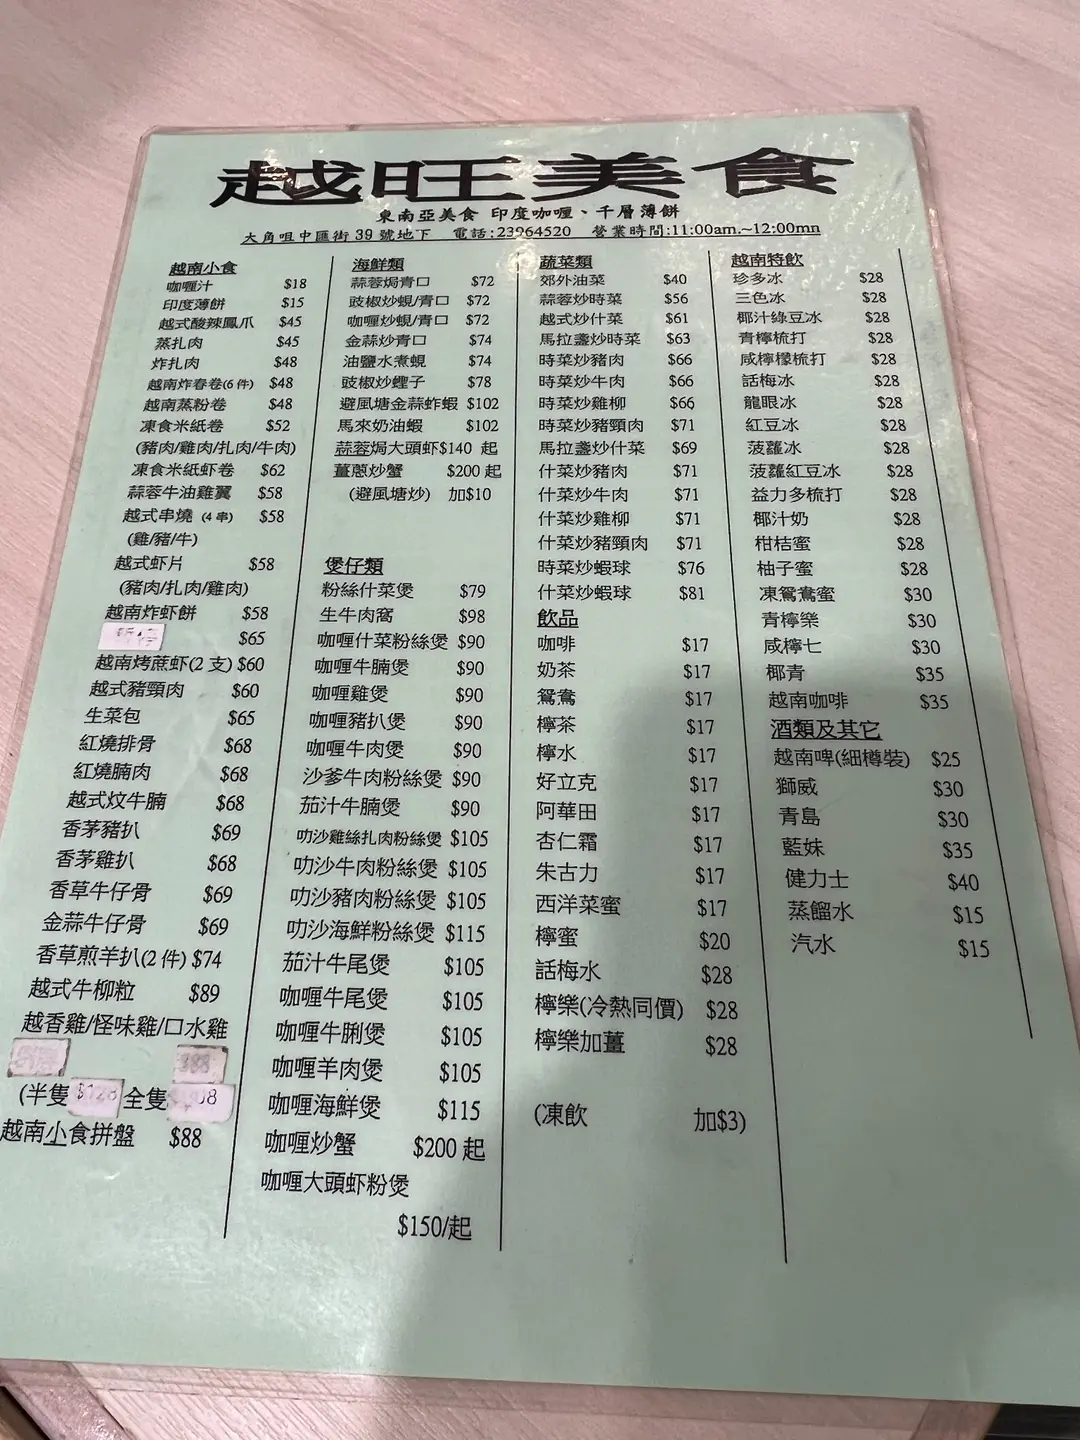 越旺美食
東南亞美食 印度咖喱、千層薄餅
大角咀中匯街 39 號地下 電話:23964520 營業時間:11:00am.~12:00mn
越南小食
咖喱汁 $18
印度薄餅 $15
越式酸辣鳳爪 $45
蒸扎肉 $45
炸扎肉 $48
越南炸春卷(6 件) $48
越南蒸粉卷 $48
凍食米紙卷 $52
(豬肉/雞肉/扎肉/牛肉)
凍食米紙虾卷 $62
蒜蓉牛油雞翼 $58
越式串燒 (4 串) $58
(雞/豬/牛)
越式虾片 $58
(豬肉/扎肉/雞肉)
越南炸虾餅 $58
$65
越南烤蔗虾(2 支) $60
越式豬頸肉 $60
生菜包 $65
紅燒排骨 $68
紅燒腩肉 $68
越式炆牛腩 $68
香茅豬扒 $69
香茅雞扒 $68
香草牛仔骨 $69
金蒜牛仔骨 $69
香草煎羊扒(2 件) $74
越式牛柳粒 $89
越香雞/怪味雞/口水雞
$88
(半隻 全隻
越南小食拼盤 $88
海鮮類
蒜蓉焗青口 $72
豉椒炒蜆/青口 $72
咖喱炒蜆/青口 $72
金蒜炒青口 $74
油鹽水煮蜆 $74
豉椒炒蟶子 $78
避風塘金蒜炸蝦 $102
馬來奶油蝦 $102
蒜蓉焗大頭虾$140 起
薑蔥炒蟹 $200 起
(避風塘炒) 加$10
煲仔類
粉絲什菜煲 $79
生牛肉窩 $98
咖喱什菜粉絲煲 $90
咖喱牛腩煲 $90
咖喱雞煲 $90
咖喱豬扒煲 $90
咖喱牛肉煲 $90
沙爹牛肉粉絲煲 $90
茄汁牛腩煲 $90
叻沙雞絲扎肉粉絲煲 $105
叻沙牛肉粉絲煲 $105
叻沙豬肉粉絲煲 $105
叻沙海鮮粉絲煲 $115
茄汁牛尾煲 $105
咖喱牛尾煲 $105
咖喱牛脷煲 $105
咖喱羊肉煲 $105
咖喱海鮮煲 $115
咖喱炒蟹 $200 起
咖喱大頭虾粉煲
$150/起
蔬菜類
郊外油菜 $40
蒜蓉炒時菜 $56
越式炒什菜 $61
馬拉盞炒時菜 $63
時菜炒豬肉 $66
時菜炒牛肉 $66
時菜炒雞柳 $66
時菜炒豬頸肉 $71
馬拉盞炒什菜 $69
什菜炒豬肉 $71
什菜炒牛肉 $71
什菜炒雞柳 $71
什菜炒豬頸肉 $71
時菜炒蝦球 $76
什菜炒蝦球 $81
飲品
咖啡 $17
奶茶 $17
鴛鴦 $17
檸茶 $17
檸水 $17
好立克 $17
阿華田 $17
杏仁霜 $17
朱古力 $17
西洋菜蜜 $17
檸蜜 $20
話梅水 $28
檸樂(冷熱同價) $28
檸樂加薑 $28
(凍飲 加$3)
越南特飲
珍多冰 $28
三色冰 $28
椰汁綠豆冰 $28
青檸梳打 $28
咸檸檬梳打 $28
話梅冰 $28
龍眼冰 $28
紅豆冰 $28
菠蘿冰 $28
菠蘿紅豆冰 $28
益力多梳打 $28
椰汁奶 $28
柑桔蜜 $28
柚子蜜 $28
凍鴛鴦蜜 $30
青檸樂 $30
咸檸七 $30
椰青 $35
越南咖啡 $35
酒類及其它
越南啤(細樽裝) $25
獅威 $30
青島 $30
藍妹 $35
健力士 $40
蒸餾水 $15
汽水 $15